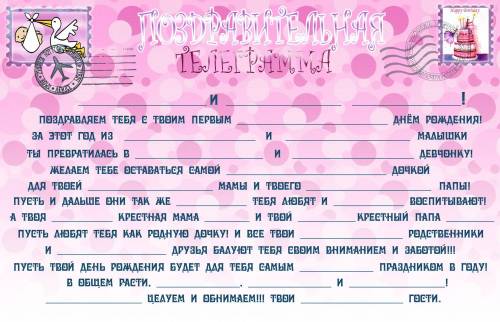 Happy Birthday
ПОЗДРАВИТЕЛЬНАЯ
ТЕЛЕГРАММА
____________________ И ____________________ ____________________!
ПОЗДРАВЛЯЕМ ТЕБЯ С ТВОИМ ПЕРВЫМ ____________________ ДНЁМ РОЖДЕНИЯ!
ЗА ЭТОТ ГОД ИЗ ____________________ И ____________________ МАЛЫШКИ
ТЫ ПРЕВРАТИЛАСЬ В ____________________ И ____________________ ДЕВЧОНКУ!
ЖЕЛАЕМ ТЕБЕ ОСТАВАТЬСЯ САМОЙ ____________________ ДОЧКОЙ
ДЛЯ ТВОЕЙ ____________________ МАМЫ И ТВОЕГО ____________________ ПАПЫ!
ПУСТЬ И ДАЛЬШЕ ОНИ ТАК ЖЕ __________ ТЕБЯ ЛЮБЯТ И __________ ВОСПИТЫВАЮТ!
А ТВОЯ __________ КРЕСТНАЯ МАМА __________ И ТВОЙ __________ КРЕСТНЫЙ ПАПА __________
ПУСТЬ ЛЮБЯТ ТЕБЯ КАК РОДНУЮ ДОЧКУ! И ВСЕ ТВОИ ____________________ РОДСТВЕННИКИ
И ____________________ ДРУЗЬЯ БАЛУЮТ ТЕБЯ СВОИМ ВНИМАНИЕМ И ЗАБОТОЙ!!!
ПУСТЬ ТВОЙ ДЕНЬ РОЖДЕНИЯ БУДЕТ ДЛЯ ТЕБЯ САМЫМ __________ ПРАЗДНИКОМ В ГОДУ!
В ОБЩЕМ РАСТИ, ____________, ____________ И ____________!
____________ ЦЕЛУЕМ И ОБНИМАЕМ!!! ТВОИ ____________ ГОСТИ.